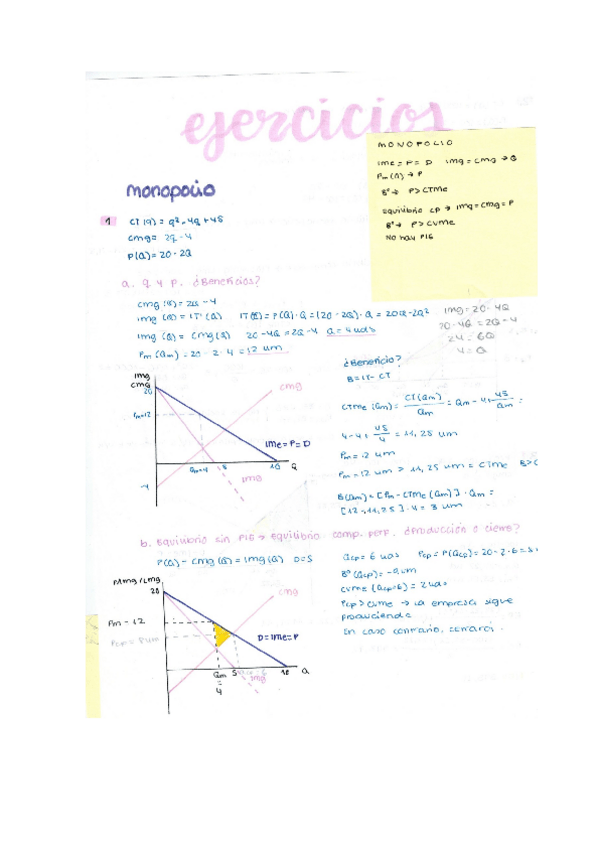 ejercicios
MONOPOLIO
IMe = P = D IMg = CMg → Q
Pm (Q) → P
Bº → P > CTMe
Equilibrio CP → IMg = CMg = P
Bº → P > CVMe
No hay PIE
monopolio
1 CT(q) = q² - 4q + 45
CMg = 2q - 4
P(Q) = 20 - 2Q
a. Q y P. ¿Beneficios?
CMg (Q) = 2Q - 4
IMg (Q) = IT' (Q) IT(Q) = P(Q) · Q = (20 - 2Q) · Q = 20Q - 2Q²
IMg = 20 - 4Q
IMg (Q) = CMg(Q) 20 - 4Q = 2Q - 4 Q = 4 uds
20 - 4Q = 2Q - 4
24 = 6Q
4 = Q
Pm (Qm) = 20 - 2 · 4 = 12 um
¿Beneficio?
B = IT - CT
CTMe (Qm) = CT(Qm) / Qm = Qm - 4 + 45 / Qm =
4 - 4 + 45 / 4 = 11,25 um
Pm = 12 um
Pm = 12 um > 11,25 um = CTMe B > 0
B(Qm) = [Pm - CTMe (Qm)] · Qm =
[12 - 11,25] · 4 = 3 um
IMg
CMg
20
Pm=12
-4
CMg
IMe = P = D
Qm=4 5 10 Q
IMg
b. Equilibrio sin PIE → Equilibrio comp. perf. ¿Producción o cierre?
P(Q) = CMg (Q) = IMg (Q) D = S
Qcp = 6 uds Pcp = P(Qcp) = 20 - 2 · 6 = 8
Bº (Qcp) = -9 um
CVMe (Qcp=6) = 2 uds
Pcp > CVMe → la empresa sigue
produciendo
En caso contrario, cerrará.
P/IMg/CMg
20
Pm = 12
Pcp = 8 um
CMg
D = IMe = P
Qm = 4
5
10 Q
IMg